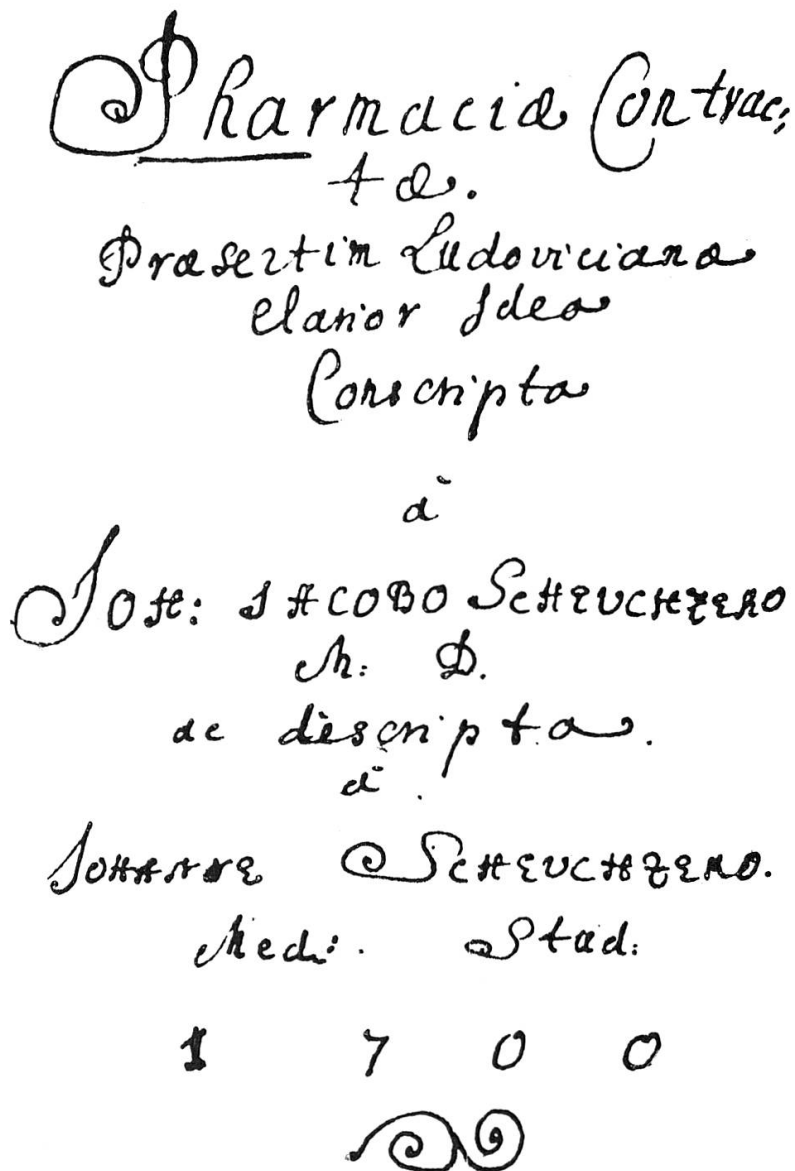 Pharmaciæ Contrac:
tæ.
Præsertim Ludoviciana
Clarior Idea
Conscripta
à
Joh: Jacobo Scheuchzero
M: D.
de descripta.
à
Johanne Scheuchzero.
Med: Stud:
1 7 0 0